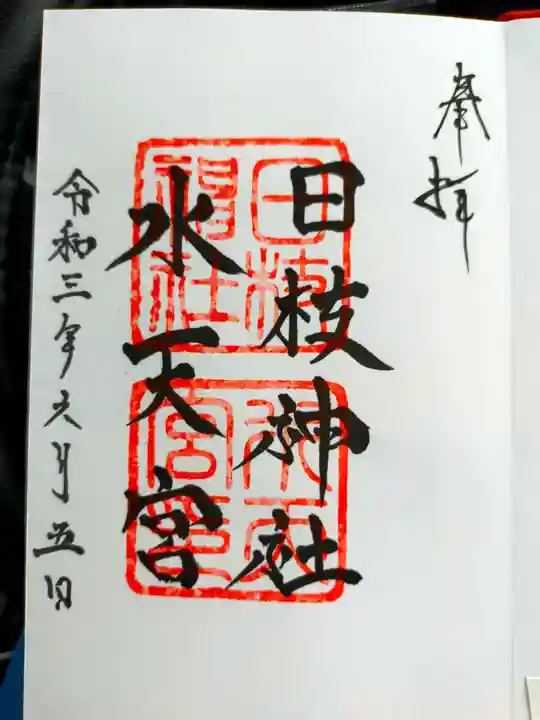 奉拝
日枝神社
水天宮
令和三年六月五日
日枝神社
水天宮